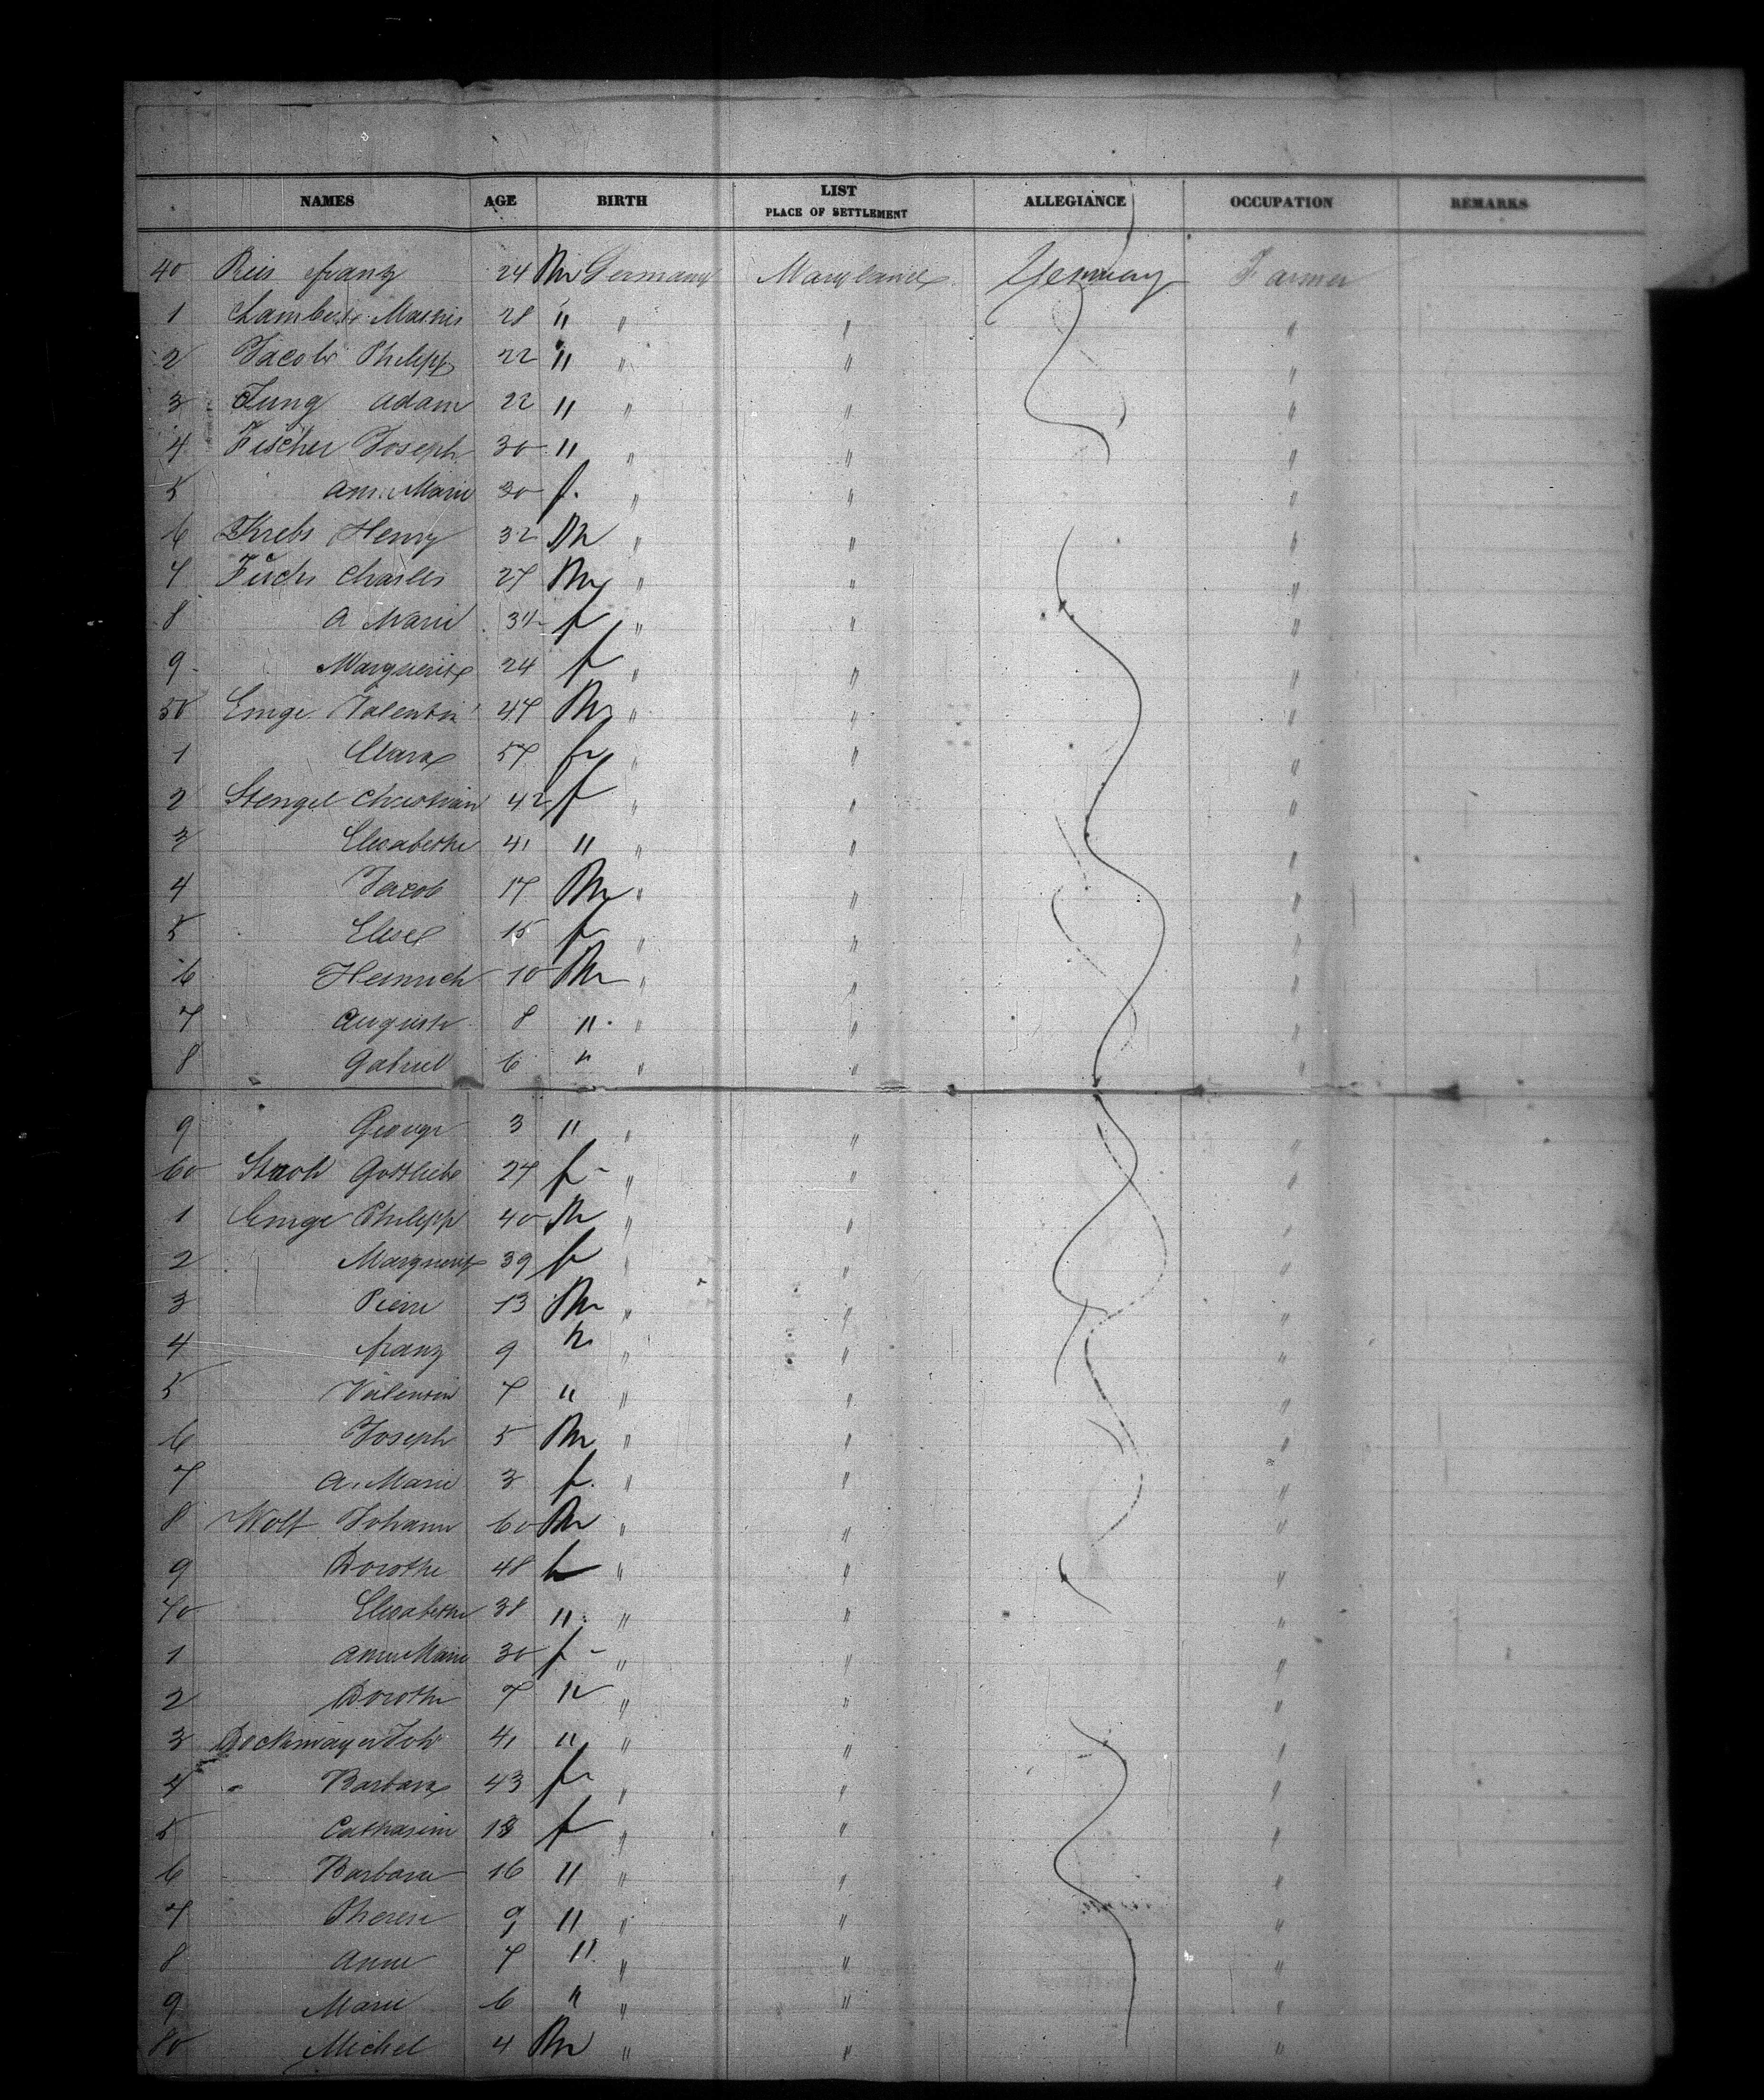 NAMES AGE BIRTH LIST PLACE OF SETTLEMENT ALLEGIANCE OCCUPATION REMARKS
40 Reis franz 24 M Germany Maryland Germany Farmer
1 Lambert 28 " " " "
2 Jacob Philipp 22 " " " "
3 Jung Adam 22 " " " "
4 Fischer Joseph 30 " " " "
5 Ann. Marie 30 f. " " "
6 Krebs Henry 32 M " " "
7 Fuchs Charles 27 M " " "
8 A Marie 34 f " " "
9 Marguerite 24 f " " "
50 Emge Valentin 47 M " " "
1 Clara 57 f " " "
2 Stengel Christian 42 f " " "
3 Elisabethe 41 " " " "
4 Jacob 17 M " " "
5 Elise 15 f " " "
6 Heinrich 10 M " " "
7 August 8 " " " "
8 Gabriel 6 " " " "
9 George 3 " " " "
60 Stroh Gottliebe 27 f " " "
1 Emge Philipp 40 M " " "
2 Marguerite 39 f " " "
3 Pierre 13 M " " "
4 franz 9 " " "
5 Valentin 7 " " " "
6 Joseph 5 M " " "
7 A. Marie 3 f. " " "
8 Wolf Johann 60 M " " "
9 Dorothe 48 f " " "
70 Elisabethe 38 " " " "
1 Anna Marie 30 f " " "
2 Dorothe 7 " " " "
3 Dockmayer Joh 41 " " " "
4 " Barbara 43 f " " "
5 Catharine 13 f " " "
6 Barbara 16 " " " "
7 Therese 9 " " " "
8 Anne 7 " " " "
9 Marie 6 " " " "
80 Michel 4 M " " "